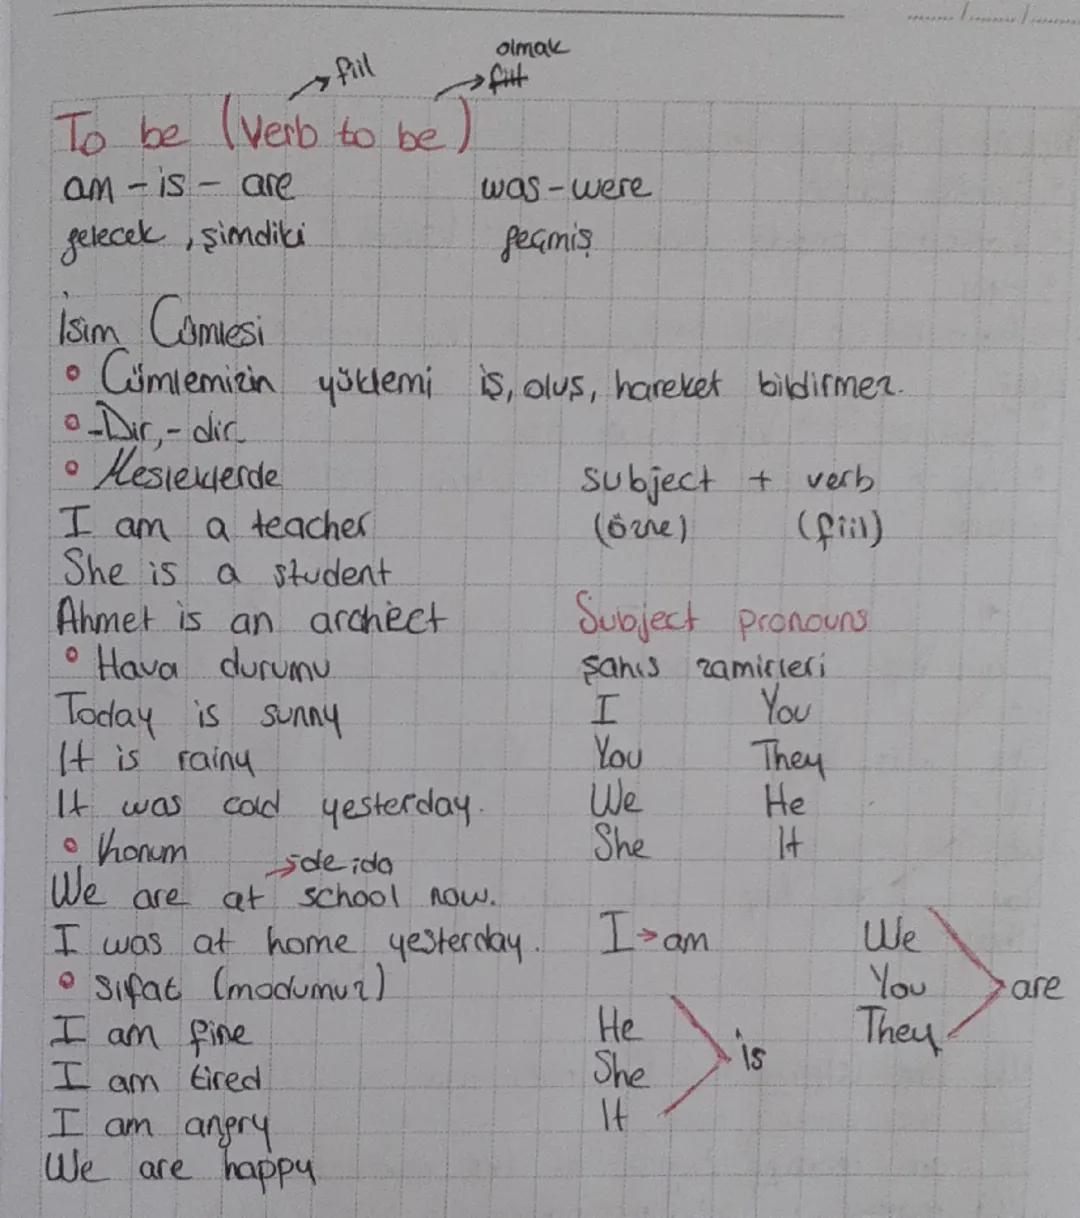 fiil
olmak
fiil
To be (verb to be)
am - is - are
was - were
gelecek, şimdiki
geçmiş
İsim Cümlesi
• Cümlemizin yüklemi iş, oluş, hareket bildirmez.
• -Dır, - dir
• Mesleklerde
I am a teacher
She is a student
Ahmet is an archiect
• Hava durumu
Today is sunny
It is rainy
It was cold yesterday.
• Konum
→ de ida
We are at school now.
I was at home yesterday.
• Sıfat (modumuz)
I am fine
I am tired
I am angry
We are happy
subject + verb
(özne) (fiil)
Subject pronouns
şahıs zamirleri
I You
You They
We He
She It
I → am
He
She
It
is
We
You
They
are